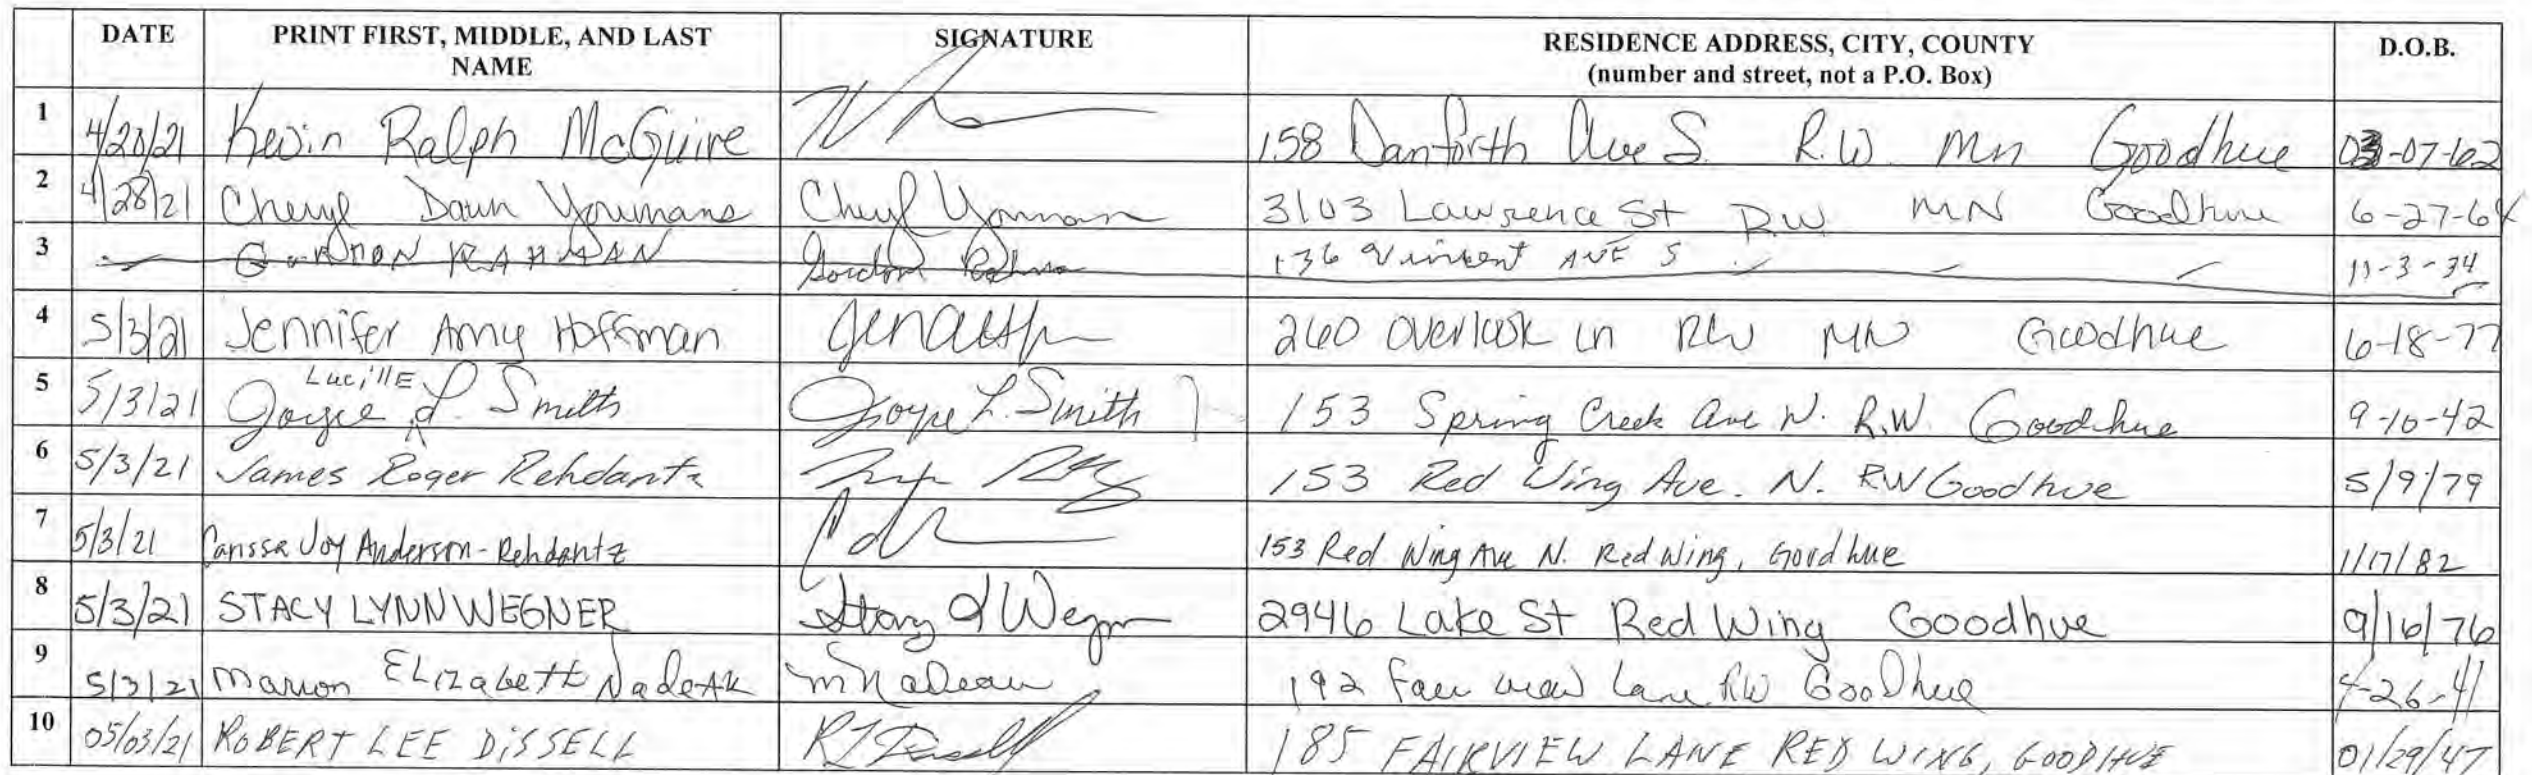 DATE PRINT FIRST, MIDDLE, AND LAST NAME SIGNATURE RESIDENCE ADDRESS, CITY, COUNTY (number and street, not a P.O. Box) D.O.B.
1 4/20/21 Kevin Ralph McGuire 158 Danforth Ave S. R.W. Mn Goodhue 03-07-62
2 4/28/21 Cheryl Dawn Youmans Cheryl Youmans 3103 Lawrence St R.W. MN Goodhue 6-27-64
3 GORDON RAHMAN Gordon Rahman 136 Vincent AVE S 11-3-34
4 5/3/21 Jennifer Amy Hoffman 260 Overlook Ln RW MN Goodhue 6-18-77
5 5/3/21 Joyce LucillE L. Smith Joyce L. Smith 153 Spring Creek Ave N. R.W. Goodhue 9-10-42
6 5/3/21 James Roger Rehdantz 153 Red Wing Ave. N. RW Goodhue 5/9/79
7 5/3/21 Carissa Joy Anderson-Rehdantz 153 Red Wing Ave N. Red Wing, Goodhue 1/17/82
8 5/3/21 STACY LYNN WEGNER Stacy L Wegner 2946 Lake St Red Wing Goodhue 9/16/76
9 5/3/21 Marion ELizabeth NadeAu M Nadeau 192 Fairview Lane RW Goodhue 4-26-41
10 05/03/21 ROBERT LEE DiSSELL RL Dissell 185 FAIRVIEW LANE RED WING, GOODHUE 01/29/47